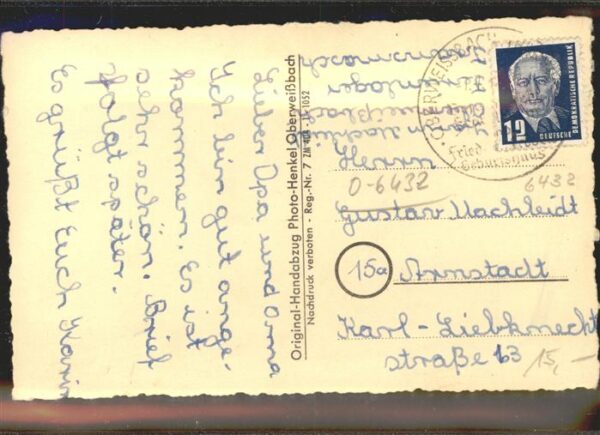 Lieber Opa und Oma
Ich bin gut ange-
kommen. Es ist
sehr schön. Brief
folgt später.
Es grüßt Euch Karin
Original-Handabzug Photo-Henkel Oberweißbach
Nachdruck verboten - Reg.-Nr. 7
1052
OBERWEISSBACH
Geburtshaus
12
DEUTSCHE
DEMOKRATISCHE REPUBLIK
Herrn
0-6432
6432
Gustav Nachleidt
15a Arnstadt
Karl-Liebknecht
straße 63
15,-